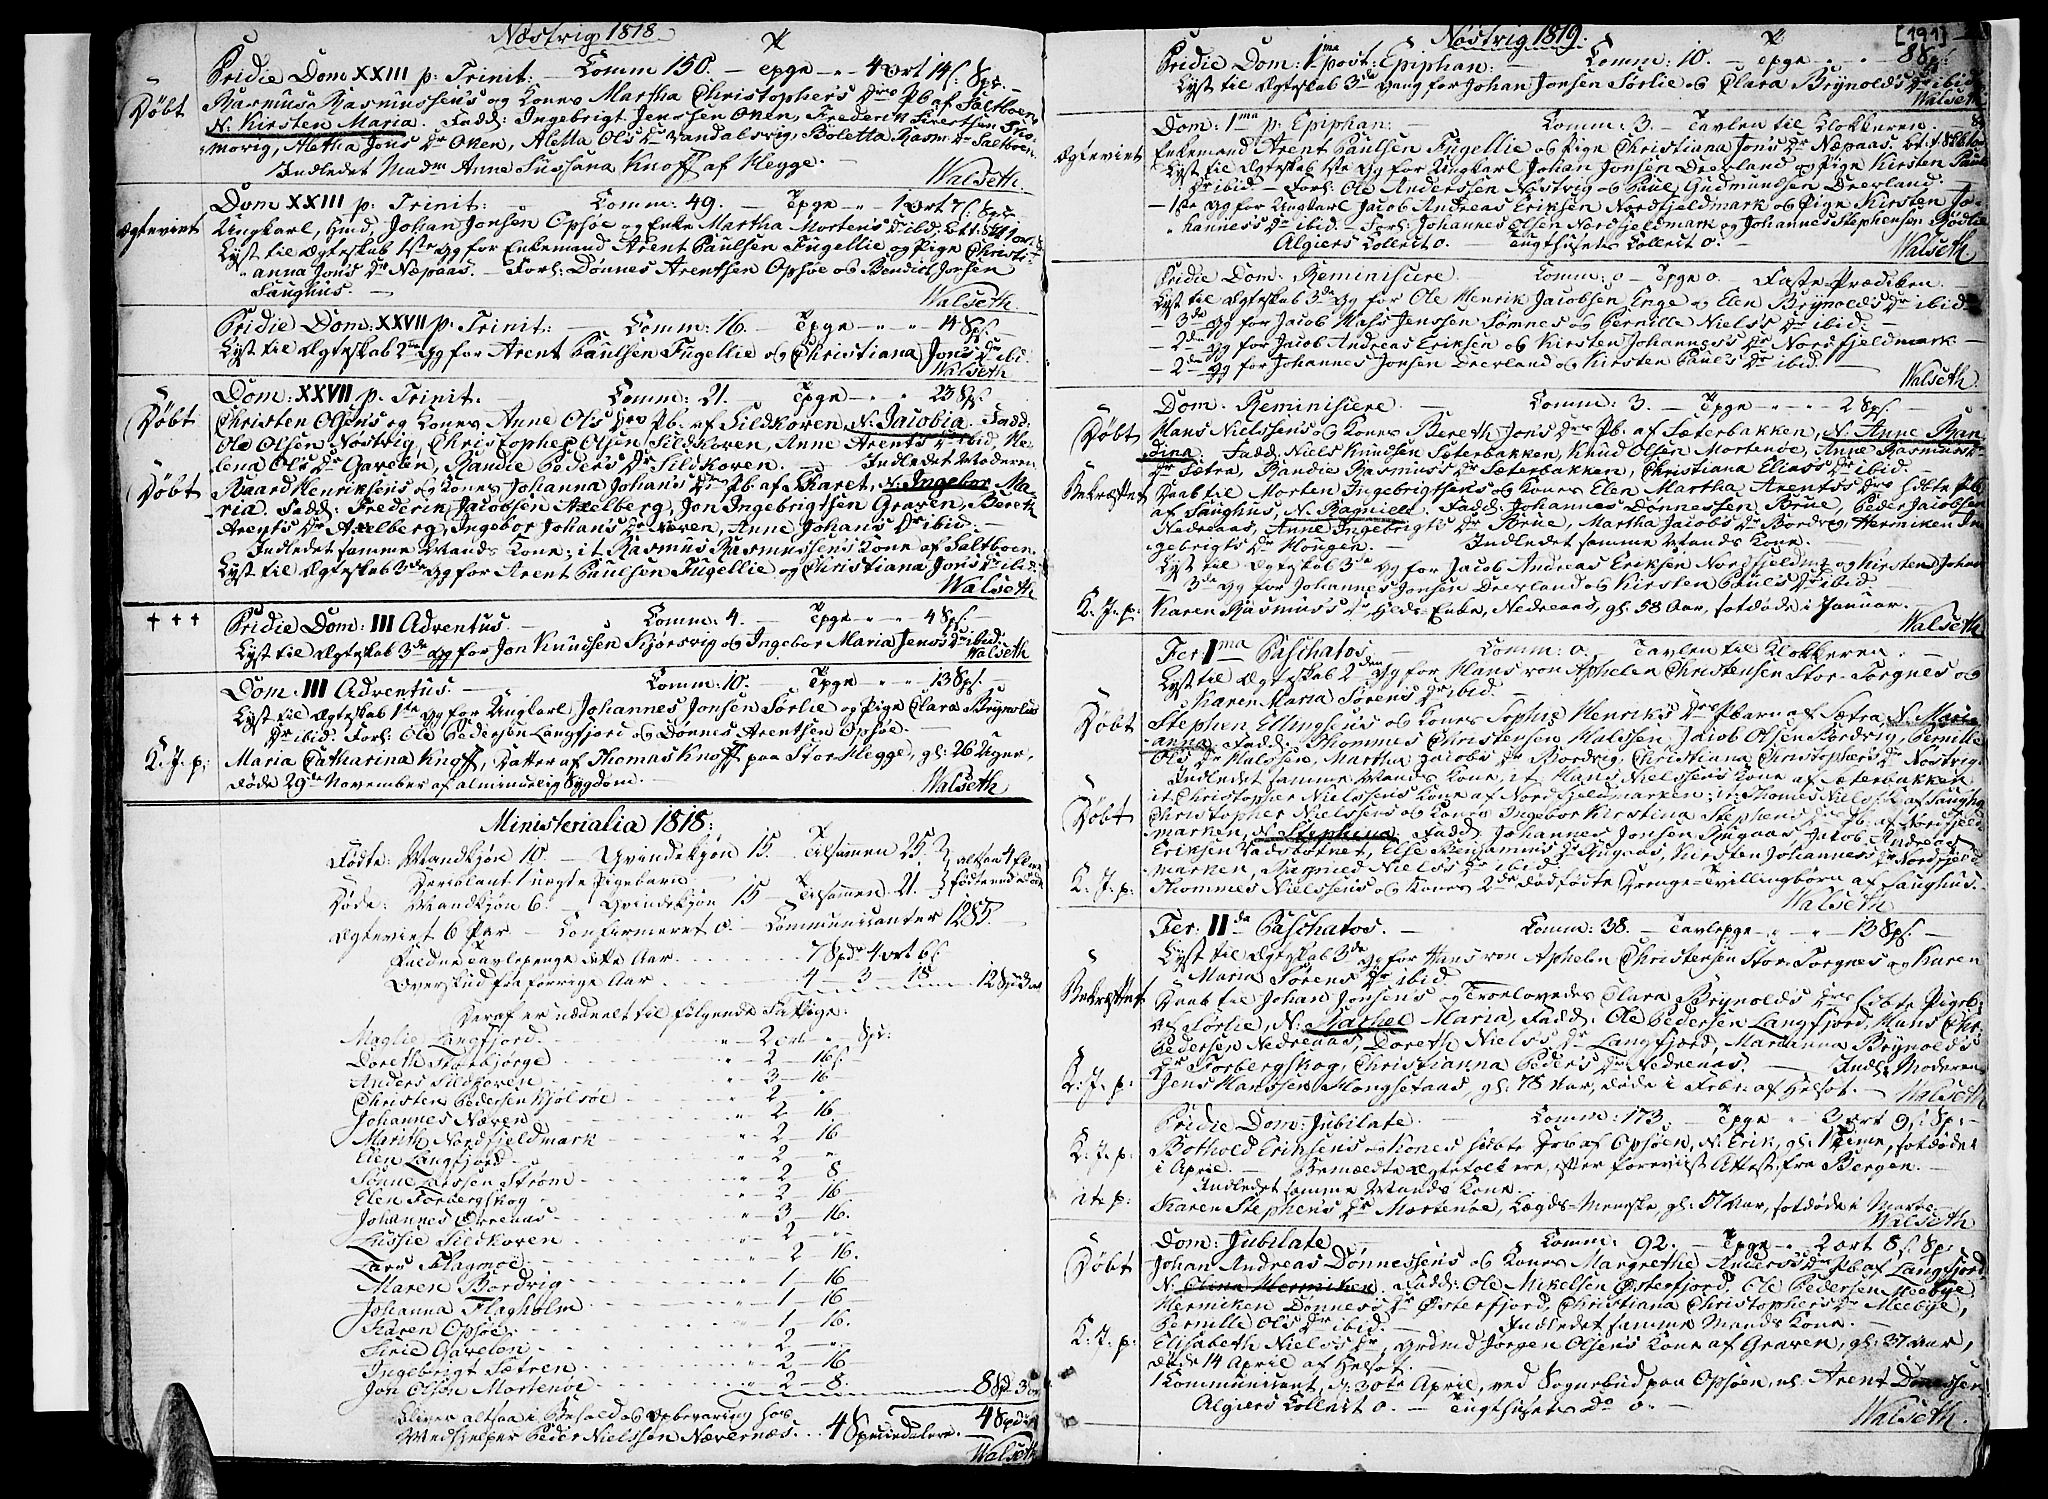 Næstvig 1818
Pridie Dom XXIII p: Trinit: — Comm 150. — Tpge „ 4 Ort 14 s: Spe —
Døbt
Rasmus Rasmussens og Kones Martha Christophers Drs Pb. af Saltboen
N: Kirsten Maria. Fadd: Ingebrigt Jenssen Oxen, Frederik Sivertsen
morvig, Aletha Jons Dr Oxen, Aletta Ols Dr Vandalsvig, Boletta Rasm: Dr Saltboen
Indledet Madm Anne Sussana Knoff af Hegge. —
Walseth.
Dom XXIII p: Trinit: — Comm: 49. — Tpge „ 1 Ort 7 s: Spe
Ægteviet
Ungkarl, Huusmd, Johan Jonsen Opsøe og Enke Martha Mortens Dr ibid.
Lyst til Ægteskab 1ste Gg for Enkemand Arent Paulsen Fugellie og Pige Christi-
anna Jons Dr Næpaas. — Forl: Dønnes Arentsen Opsøe og Bendict Jonsen
Sanghus. —
Walseth.
Pridie Dom: XXVII p: Trinit: — Comm: 16. — Tpge „ „ 14 sp: —
Lyst til Ægteskab 2den Gg for Arent Paulsen Fugellie og Christiana Jons Dr ibid.
Walseth
Dom: XXVII p. Trinit: — Comm: 21. — Tpge „ „ 23 sp: —
Døbt
Christen Olsens og Kones Anne Ols Drs Pb. af Sildkoven, N: Jacobia. Fadd:
Ole Olsen Nøstvig, Christopher Olsen Sildkoven, Anne Arents Dr ibid, He-
lena Ols Dr Garelen, Randie Peders Dr Sildkoven. Indledet Moderen
Døbt
Baard Henriksens og Kones Johanna Johans Drs Pb. af Skaret, N: Ingebor Ma-
ria. Fadd: Frederik Jacobsen Axelberg, Jon Ingebrigtsen Graven, Bereth
Arents Dr Axelberg, Ingebor Johans Dr Næven, Anne Johans Dr ibid. —
Indledet samme Mands Kone; it Rasmus Rasmussens Kone af Saltboen.
Lyst til Ægteskab 3de Gg for Arent Paulsen Fugellie og Christiana Jons Dr ibid.
Walseth
Pridie Dom: III Adventus. — Comm: 4. — Tpge „ „ 4 sp: —
Lyst til Ægteskab 3de Gg for Jon Knudsen Kjørsvig og Ingebor Maria Jens Dr ibid.
Walseth
Dom: III Adventus. — Comm: 10. — Tpge „ „ 13 sp: —
Lyst til Ægteskab 1ste Gg for Ungkarl Johannes Jonsen Sørlie og Pige Clara Brynolds
Dr ibid. Forl: Ole Pedersen Langfjord og Dønnes Arentsen Opsøe. —
K. J. p:
Maria Catharina Knoff, Datter af Thomas Knoff paa Stor Hegge, gl: 26 Uger,
døde 29de November af almindelig Sygdom. —
Walseth
Ministerialia 1818:
Fødte: Mandkjøn 10. — Qvindekjøn 15. — Tilsammen 25. altsaa 4 flere
Deriblant 1 uægte Pigebarn — fødte end døde
Døde: Mandkjøn 6. — Qvindekjøn 15 — Tilsammen 21.
Ægteviet 6 Par — Confirmeret 0. — Communicanter 1285. —
Faldne Tavlepenge dette Aar 7 Spdr 4 ort 6 s
Overskud fra forrige Aar 4 — 3 — 18 12 Spd
Deraf er uddeelt til følgende Fattige:
Maglie Langfjord 2 ort „ sp:
Doreth Storbjørge 2 — 16 s.
Anders Sildkoven 3 — 16
Christen Pedersen Kjølsøe 2 „
Johannes Næven 2 — 16
Marith Nordfjeldmark 2 — 16
Elen Langfjord 2 „
Sønne Larssen Strøm 2 — 8
Elen Torbergskog 2 — 16
Johannes Orrenas 3 — 16.
Lussie Sildkoven 2 —
Lars Flagmoe 2 — 16.
Maren Bordvig 1 — 16
Johanna Flagholm 1 — 16
Karen Opsøe 1 — 16.
Sirie Garelen 2 —
Ingebrigt Sætren 2 — 16
Jon Olsen Mortenøe 2 — 8. 8 Sp 3 or
Bliver altsaa i Behold og Opbevaring hos
Medhjelper Peder Nielssen Nævernes. 4 Speciedalere. — 4 Spd
Walseth
Nøstvig 1819. [191]
Pridie Dom: 1ma post: Epiphan: — Comm: 10. — Tpge „ 8 sp:
Lyst til Ægteskab 3de Gang for Johan Jonsen Sørlie og Clara Brynolds Dr ibid.
Walseth
Dom: 1ma p: Epiphan: Comm: 3. — Tavlen til Klokkeren
Ægteviet
Enkemand Arent Paulsen Fugellie og Pige Christiana Jons Dr Næpaas.
Lyst til Ægteskab 1ste Gg for Ungkarl Johan Jonsen Dverland og Pige Kirsten Pauls
Dr ibid — Forl: Ole Anderssen Nøstvig og Paul Gudmundsen Dverland. —
— 1ste Gg for Ungkarl Jacob Andreas Eriksen Nordfjeldmark og Pige Kirsten Jo-
hannes's Dr ibid. — Forl: Johannes Olsen Nordfjeldmark og Johannes Stephensen Rødlie
Algiers Collect 0. — Tugthusets Collect 0. —
Walseth
Pridie Dom: Reminiscere Comm: 0 — Tpge 0. Faste-Prædiken —
Lyst til Ægteskab 3de Gg for Ole Henrik Jacobsen Enge og Elen Brynolds Dr ibid
— 3de Gg for Jacob Mahs Jenssen Sømnes og Pernille Niels's Dr ibid. —
— 2de Gg for Jacob Andreas Eriksen og Kirsten Johannes's Dr Nordfjeldmark —
— 2de Gg for Johannes Jonsen Dverland og Kirsten Paul's Dr ibid —
Walseth.
Dom: Reminiscere. — Comm: 3. — Tpge „ „ 2 sp: —
Døbt
Hans Nielssens og Kones Bereth Jons Drs Pb. af Sæterbakken, N: Anne Ran-
dina. Fadd: Niels Knudsen Sæterbakken, Knud Olsen Mortenøe, Anne Rasmus's
Dr Sætra, Randie Rasmus's Dr Sæterbakken, Christiana Elias's Dr ibid. —
Bekræftet
Daab til Morten Ingebrigtsens og Kones Elen Martha Arents's Drs Pb
af Sanghus, N: Ragnild. Fadd: Johannes Dønnessen Brue, Peder Jacobsen
Nedreaas, Anne Ingebrigts Dr Brue, Martha Jacobs Dr Bordvig, Hermiken In-
gebrigts Dr Hougen. — Indledet samme Mands Kone. —
Lyst til Ægteskab 3de Gg for Jacob Andreas Eriksen Nordfjeldmk og Kirsten Johan
— 3de Gg for Johannes Jonsen Dverland og Kirsten Pauls Dr ibid —
K. J. p:
Karen Rasmus's Dr Enke, Nedreaas, gl: 58 Aar, sotdøde i Januar.
Walseth
Fer: 1ma Paschatos. — Comm: 0. Tavlen til Klokkeren. —
Lyst til Ægteskab 2den Gg for Hans von Aphelen Christensen Stor-Torgnes og
Karen Maria Sørens Dr ibid. —
Døbt
Stephen Ellingsens og Kones Sophie Henriks Drs Pbarn af Sætra, N: Maria-
anna. Fadd: Thommes Christensen Halssen, Jacob Olsen Bordvig, Pernille
Ols Dr Halssen, Martha Jacobs Dr Bordvig, Christiana Christophers Dr Nøstvig.
Indledet samme Mands Kone, it Hans Nielssens Kone af Sæterbakken
it Christopher Nielssens Kone af Nordfjeldmarken; it Thomes Niels's af Sanghus
Døbt
Christopher Nielssens og Kones Ingebor Kirstina Stephens Drs Pb. af Nordfjeld-
marken, N: Stephena. Fadd: Johannes Jonsen Rugaas, Jacob Andreas
Eriksen Vadsbotnet, Else Benjamins Dr Rugaas, Kirsten Johannes's Dr Nordfjeld-
marken, Ragnild Niels's Dr ibid. —
K. J. p:
Thommes Nielssens og Kones 2de dødfødte Drenge-Tvillingbørn af Sanghus. —
Walseth
Fer: IIda Paschatos. — Comm: 38. — Tavlepge „ „ 13 sp: —
Lyst til Ægteskab 3de Gg for Hans von Aphelen Christensen Stor-Torgnes og Karen
Maria Sørens Dr ibid. —
Bekræftet
Daab til Johan Jonsens og Troelovedes Clara Brynolds Drs Pigeb:
af Sørlie, N: Mathel Maria, Fadd: Ole Pedersen Langfjord, Hans Chr:
Pedersen Nedreaas, Doreth Niels's Dr Langfjord, Marianna Brynold's
Dr Torbergskog, Christianna Peders Dr Nedreaas. — Indl: Moderen
K. J. p:
Jens Hanssen Mongsetaas, gl: 78 Aar, døde i Febr: af Helsot. —
Walseth
Pridie Dom: Jubilate. — Comm: 173. — Tpge „ 3 ort 9 s: Sp: —
K. J. p:
Bothold Eriksens og Kones Db af Opsøen, N: Erik, gl: 1 Time, sotdøde
i April. — Bemældte Ægtefolk ere, efter foreviist Attest, fra Bergen. —
Indledet samme Mands Kone. —
it. p:
Karen Stephens Dr Mortenøe, Lægds-Menneske, gl: 57 Aar, sotdøde i Martz.
Walseth
Dom: Jubilate — Comm: 92. — Tpge „ 2 ort 8 s: Sp: —
Døbt
Johan Andreas Dønnessens og Kones Margrethe Anders's Drs Pb af Langfjord
N: Olina Hermiken. Fadd: Ole Mikelsen Østerfjord, Ole Pedersen Meebye
Hermiken Dønnes's Dr Østerfjord, Christiana Christophers Dr Meebye,
Pernille Ols Dr ibid. — Indledet samme Mands Kone. —
K. J. p:
Elisabeth Niels's Dr, Grdmd Jørgen Olsens Kone af Graven, gl: 37 Aar,
døde 14 April af Helsot. —
1 Communicant, d: 30te April, ved Sognebud paa Opsøen, nl: Arent Dønnessen
Algiers Collect 0. — Tugthusets Do 0. —
Walseth.